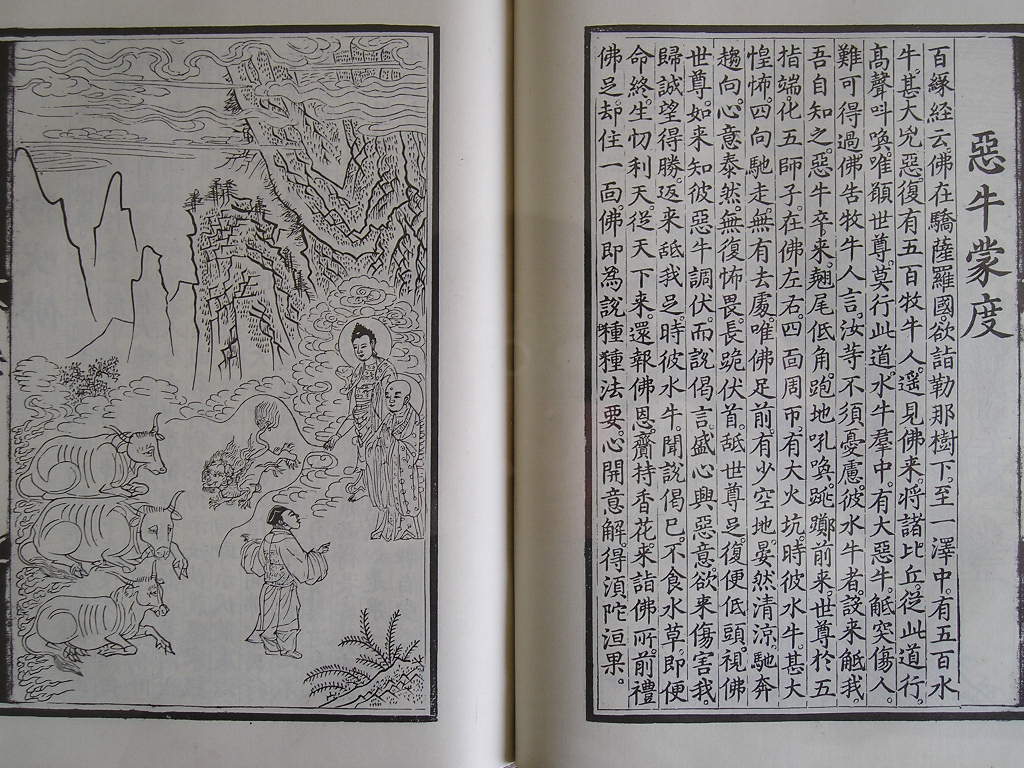 惡牛蒙度
百緣經云佛在驕薩羅國。欲詣勒那樹下。至一澤中。有五百水
牛。甚大兇惡。復有五百牧牛人。遙見佛來。將諸比丘。從此道行。
高聲叫喚。唯願世尊。莫行此道。水牛羣中。有大惡牛。觝突傷人。
難可得過。佛告牧牛人言。汝等不須憂慮。彼水牛者。設來觝我。
吾自知之。惡牛卒來。翹尾低角。跑地吼喚。跳躑前來。世尊於五
指端。化五師子。在佛左右。四面周帀。有大火坑。時彼水牛。甚大
惶怖。四向馳走。無有去處。唯佛足前。有少空地。晏然清涼。馳奔
趨向。心意泰然。無復怖畏。長跪伏首。舐世尊足。復便低頭。視佛
世尊。如來知彼惡牛調伏而說偈言。盛心興惡意。欲來傷害我。
歸誠望得勝。返來舐我足。時彼水牛。聞說偈已。不食水草。即便
命終。生忉利天。從天下來。還報佛恩。齎持香花。來詣佛所。前禮
佛足。却住一面。佛即為說種種法要。心開意解。得須陀洹果。